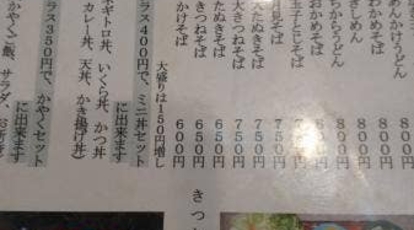 あんかけうどん 800円
わかめそば 800円
きしめん 800円
ちからうどん 800円
おかめそば 800円
玉子とじそば 750円
月見そば 750円
大たぬきそば 750円
大きつねそば 750円
たぬきそば 650円
きつねそば 650円
かけそば 600円
大盛りは150円増し
ラス400円で、ミニ丼セット
に出来ます
ネギトロ丼、いくら丼、かつ丼
カレー丼、天丼、かき揚げ丼)
ラス350円で、かやくセット
に出来ます
かやくご飯、サラダ、お新香
きつ